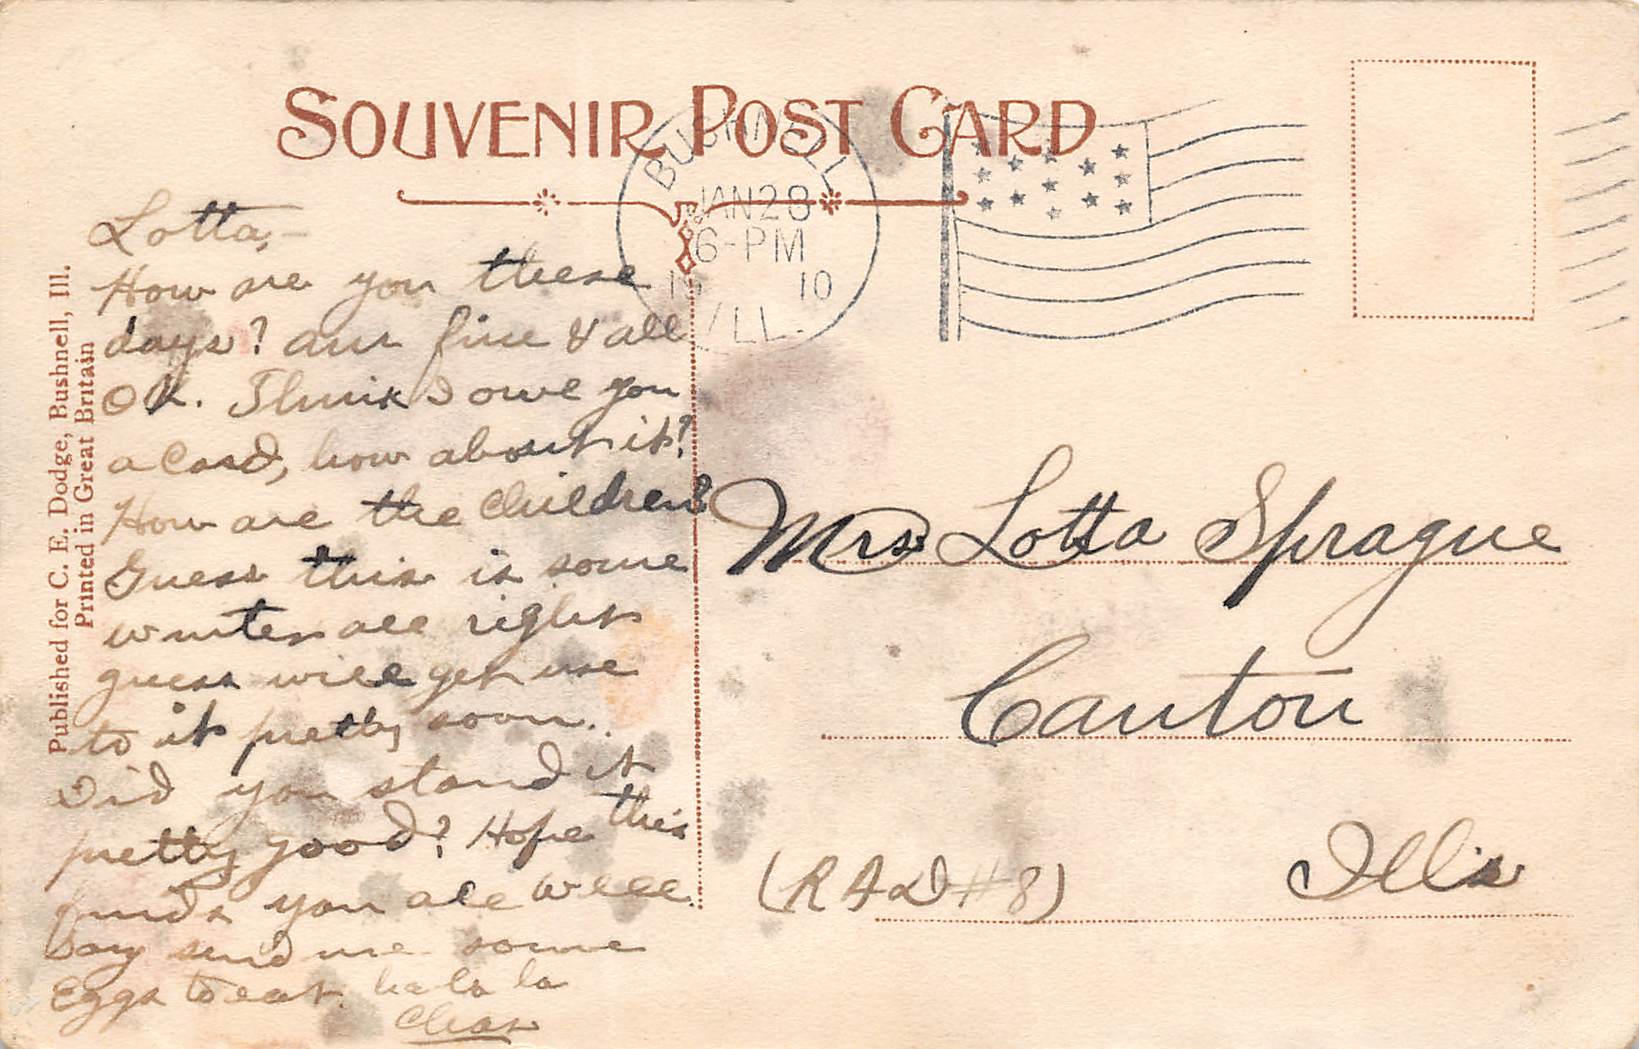 SOUVENIR POST CARD
BUSHNELL
JAN 28
6-PM
10
ILL.
Published for C. E. Dodge, Bushnell, Ill.
Printed in Great Britain
Lotta,-
How are you these
days? am fine & all
OK. Think I owe you
a Card, how about it?
How are the children?
Guess this is some
winter all right
guess will get use
to it pretty soon.
Did you stand it
pretty good? Hope this
finds you all well
Say send me some
Eggs to eat. ha la la
Mrs Lotta Sprague
Canton
Ills
(R F D #8)